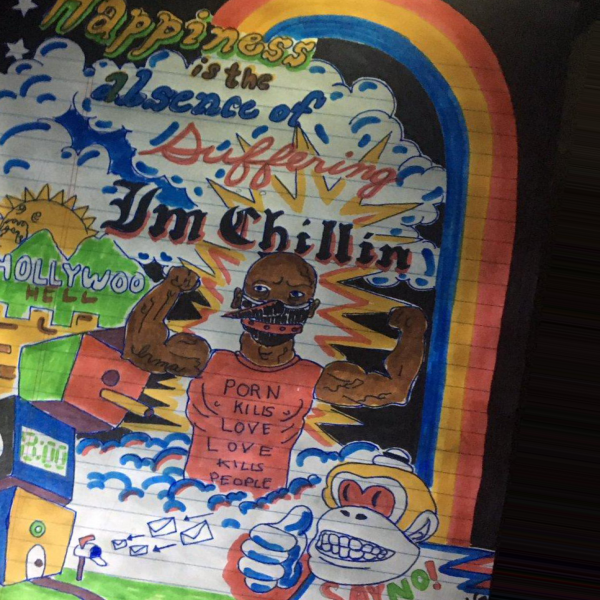 Happiness
is the
absence of
Suffering
Im Chillin
HOLLYWOO
HELL
PORN
KILLS
LOVE
LOVE
KILLS
PEOPLE
8:00
SAY NO!